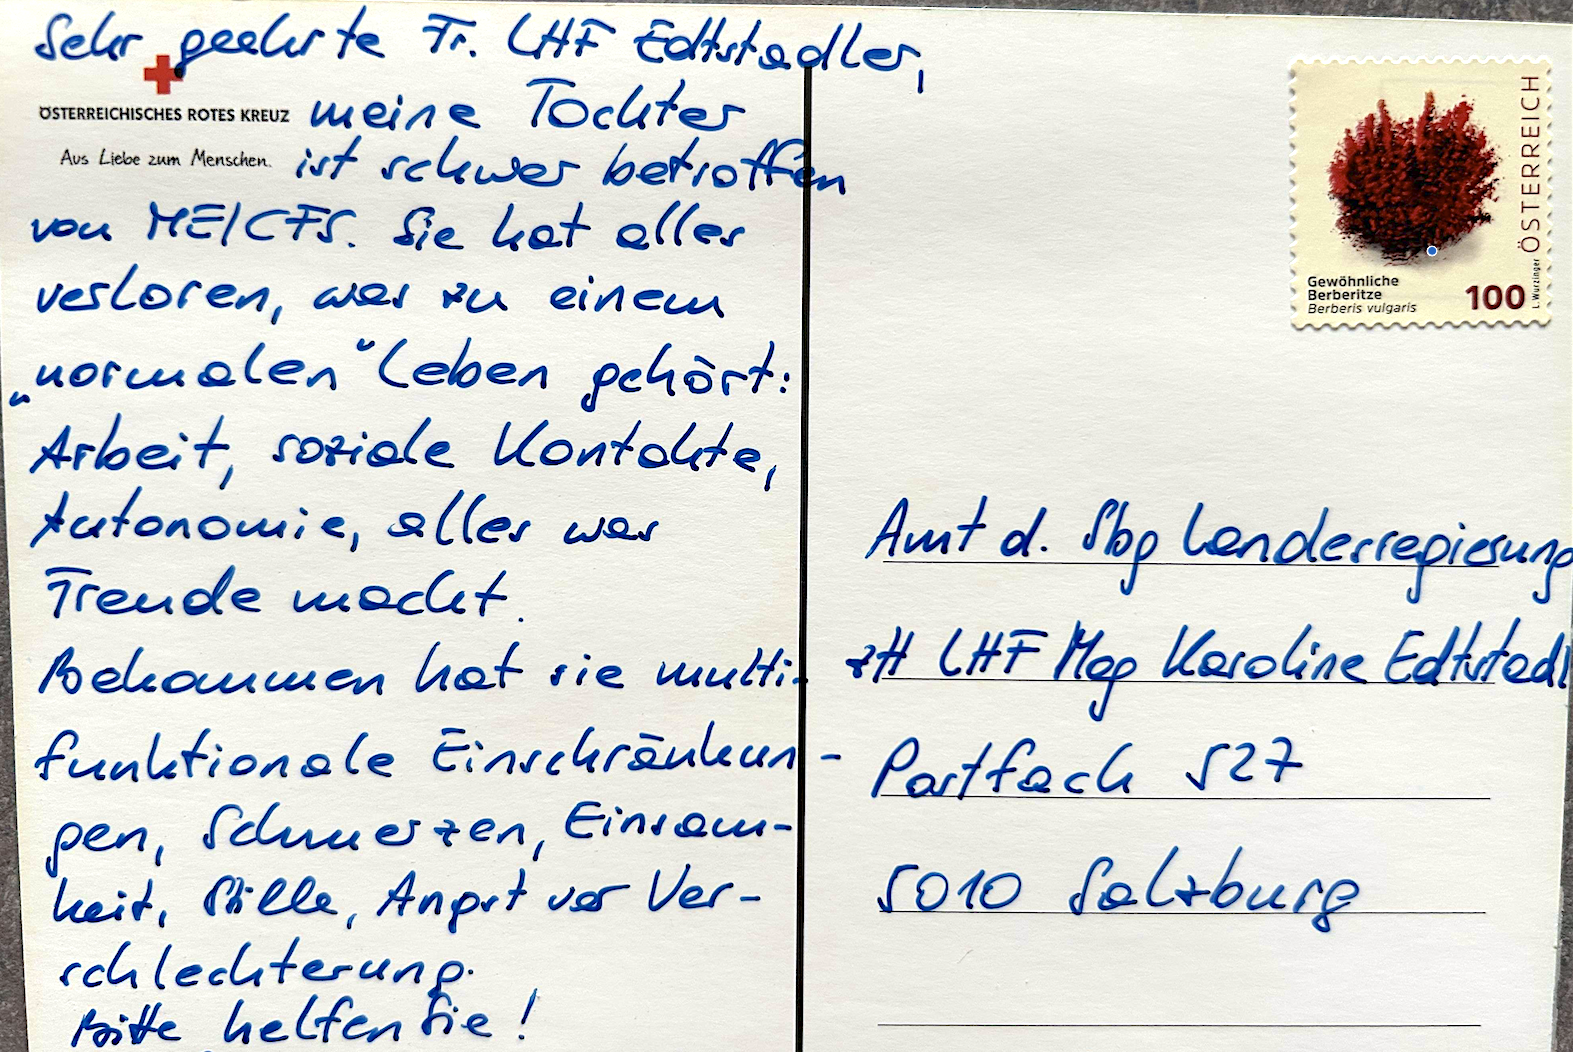 Sehr geehrte Fr. LHF Edtstadler,
ÖSTERREICHISCHES ROTES KREUZ
Aus Liebe zum Menschen.
meine Tochter
ist schwer betroffen
von ME/CFS. Sie hat alles
verloren, was zu einem
„normalen“ Leben gehört:
Arbeit, soziale Kontakte,
Autonomie, alles was
Freude macht.
Bekommen hat sie multi-
funktionale Einschränkun-
gen, Schmerzen, Einsam-
keit, Stille, Angst vor Ver-
schlechterung.
Bitte helfen Sie!
ÖSTERREICH
L. Wurzinger
Gewöhnliche
Berberitze
Berberis vulgaris
100
Amt d. Sbg Landesregierung
zH LHF Mag Karoline Edtstadl
Postfach 527
5010 Salzburg